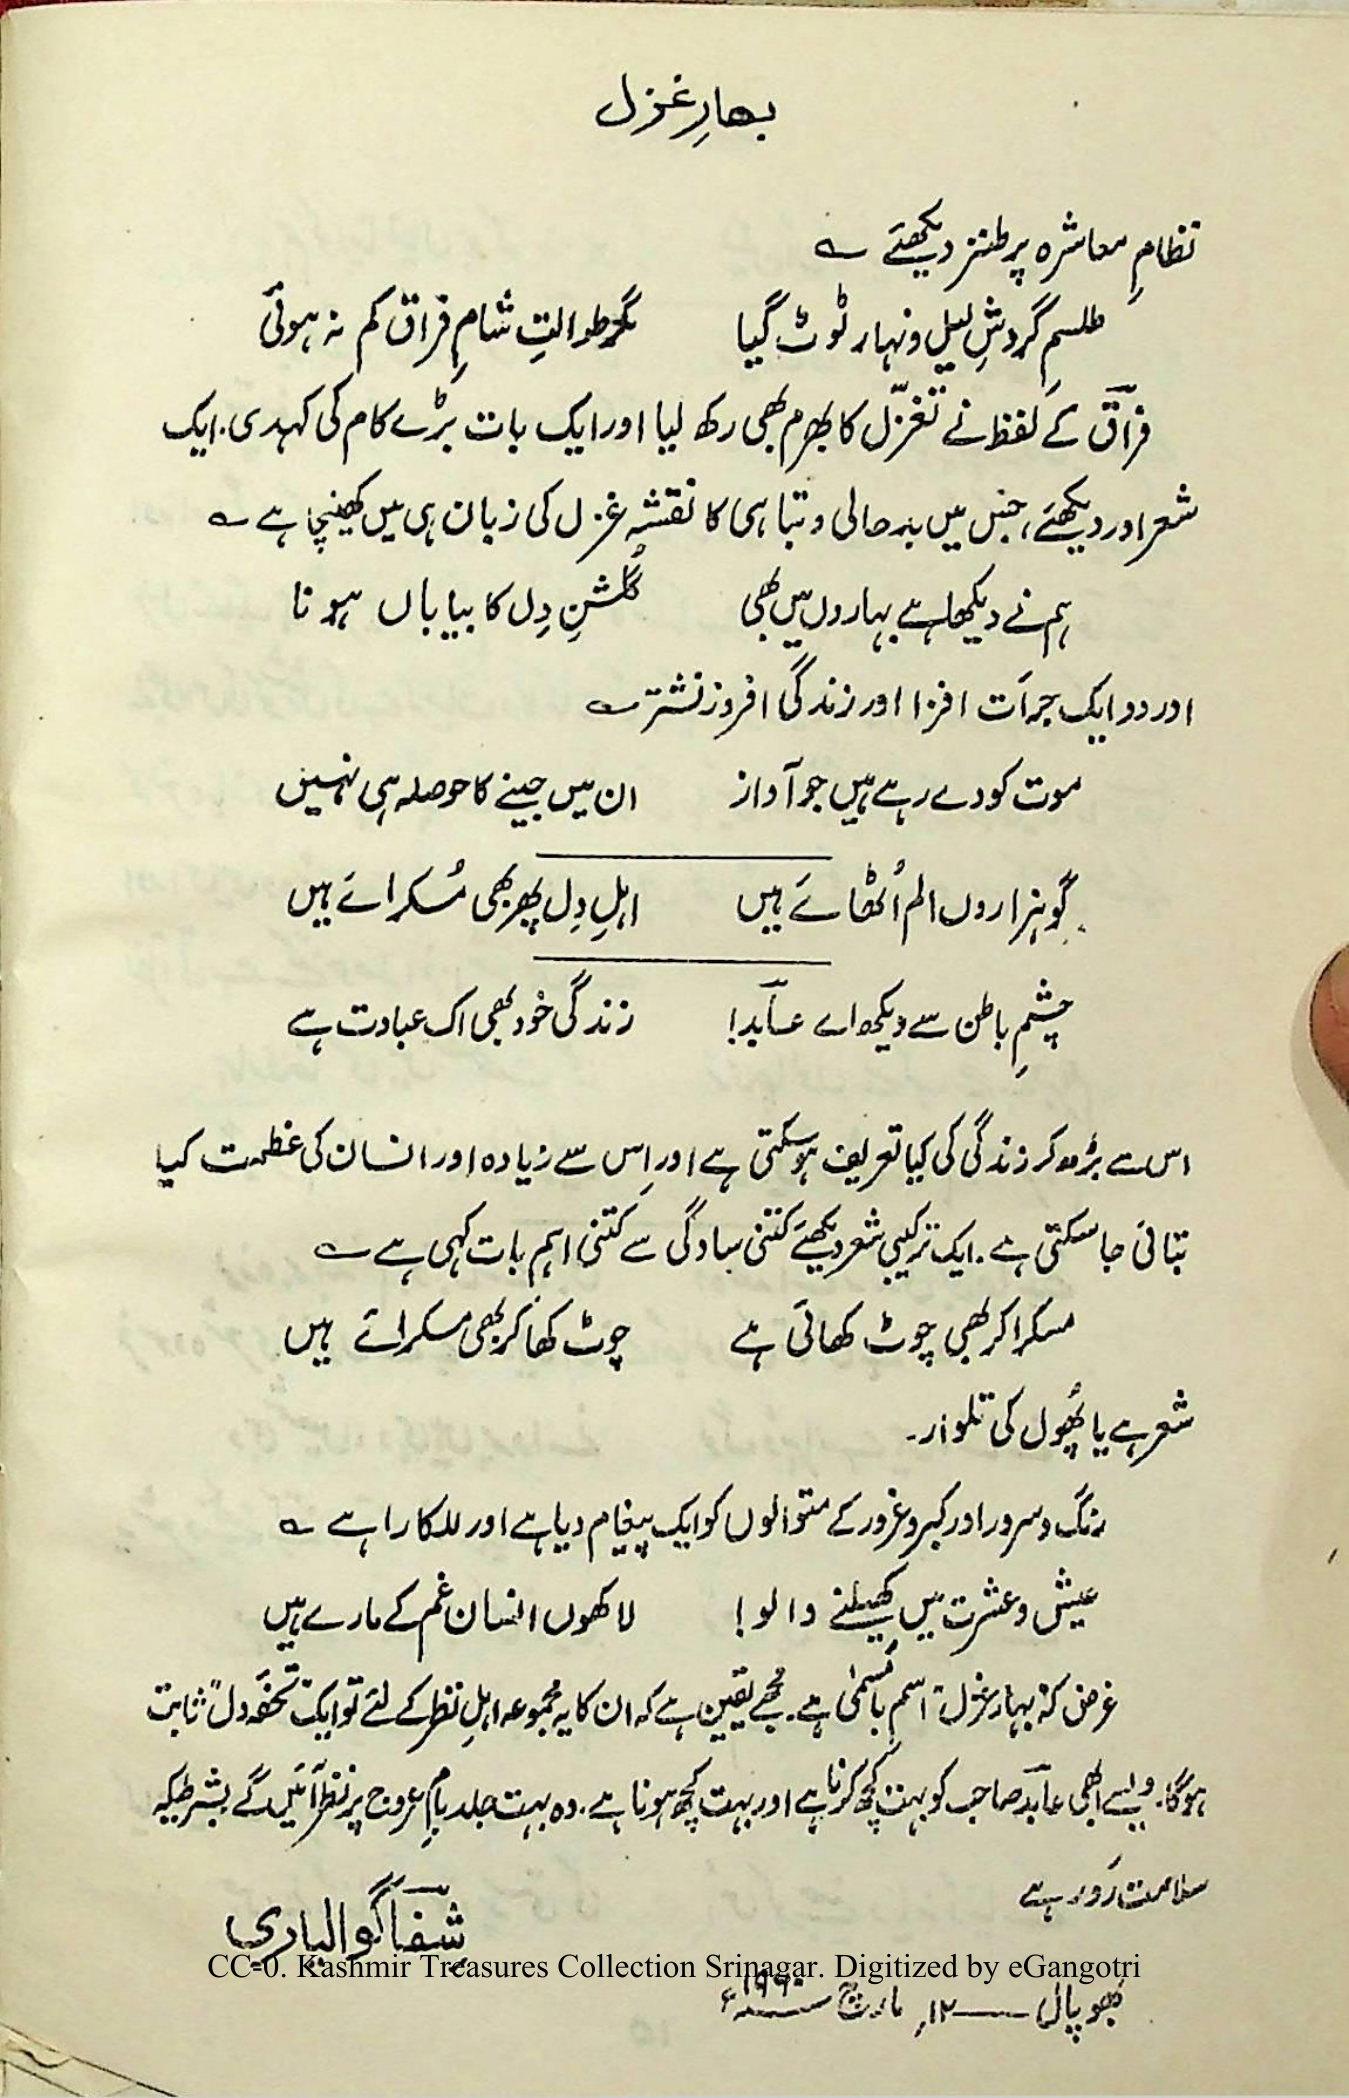 بہارِ غزل
نظامِ معاشرہ پر طنز دیکھئے ؎
طلسمِ گردشِ لیل و نہار ٹوٹ گیا مگر طوالتِ شامِ فراق کم نہ ہوئی
فراقؔ کے لفظ نے تغزّل کا بھرم بھی رکھ لیا اور ایک بات بڑے کام کی کہدی. ایک
شعر اور دیکھئے، جس میں بدحالی و تباہی کا نقشہ غزل کی زبان ہی میں کھینچا ہے ؎
ہم نے دیکھا ہے بہاروں میں بھی گلشنِ دِل کا بیاباں ہونا
اور دو ایک جرأت افزا اور زندگی افروز نشتر ؎
موت کو دے رہے ہیں جو آواز ان میں جینے کا حوصلہ ہی نہیں
گو ہزاروں الم اُٹھائے ہیں اہلِ دِل پھر بھی مُسکرائے ہیں
چشمِ باطن سے دیکھ اے عابدؔ! زندگی خُود بھی اک عبادت ہے
اس سے بڑھ کر زندگی کی کیا تعریف ہو سکتی ہے اور اِس سے زیادہ اور انسان کی عظمت کیا
بتائی جا سکتی ہے. ایک ترکیبی شعر دیکھئے کتنی سادگی سے کتنی اہم بات کہی ہے ؎
مسکرا کر بھی چوٹ کھائی ہے چوٹ کھا کر بھی مسکرائے ہیں
شعر ہے یا پھُول کی تلوار۔
رنگ و سرور اور کبر و غرور کے متوالوں کو ایک پیغام دیا ہے اور للکارا ہے ؎
عیش و عشرت میں کھیلنے والو! لاکھوں انسان غم کے مارے ہیں
غرض کہ "بہارِ غزل" اسمِ بامُسمیٰ ہے۔ مجھے یقین ہے کہ ان کا یہ مجموعہ اہلِ نظر کے لئے تو ایک "تحفۂ دل" ثابت
ہوگا. ویسے ابھی عابدؔ صاحب کو بہت کچھ کرنا ہے اور بہت کچھ ہونا ہے. وہ بہت جلد بامِ عروج پر نظر آئیں گے بشرطیکہ
سلامت رَو رہے
شفاؔ گوالیاری
CC-0. Kashmir Treasures Collection Srinagar. Digitized by eGangotri
بھوپال ۱۲ر مارچ ۱۹۶۰ء